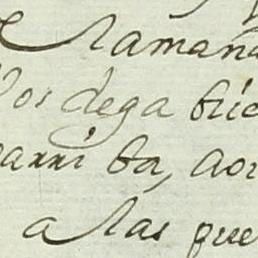 lamana
los dega bric
arri ba, aor
a las que